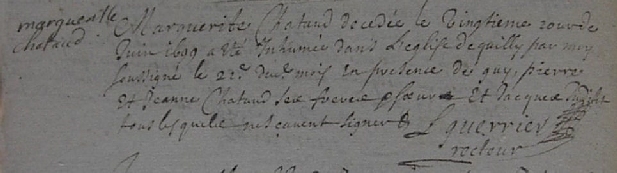 marguerite
Chataud
Marguerite Chataud decedée le vingtieme jour de
Juin 1699 a été Inhumée dans L'eglise de quilly par moy
soussigné le 21e dud. mois En presence de guy, pierre
Et Jeanne Chataud ses freres & soeur Et Jacques
tous lesquels ne sçavent signer &
L guerrier
recteur